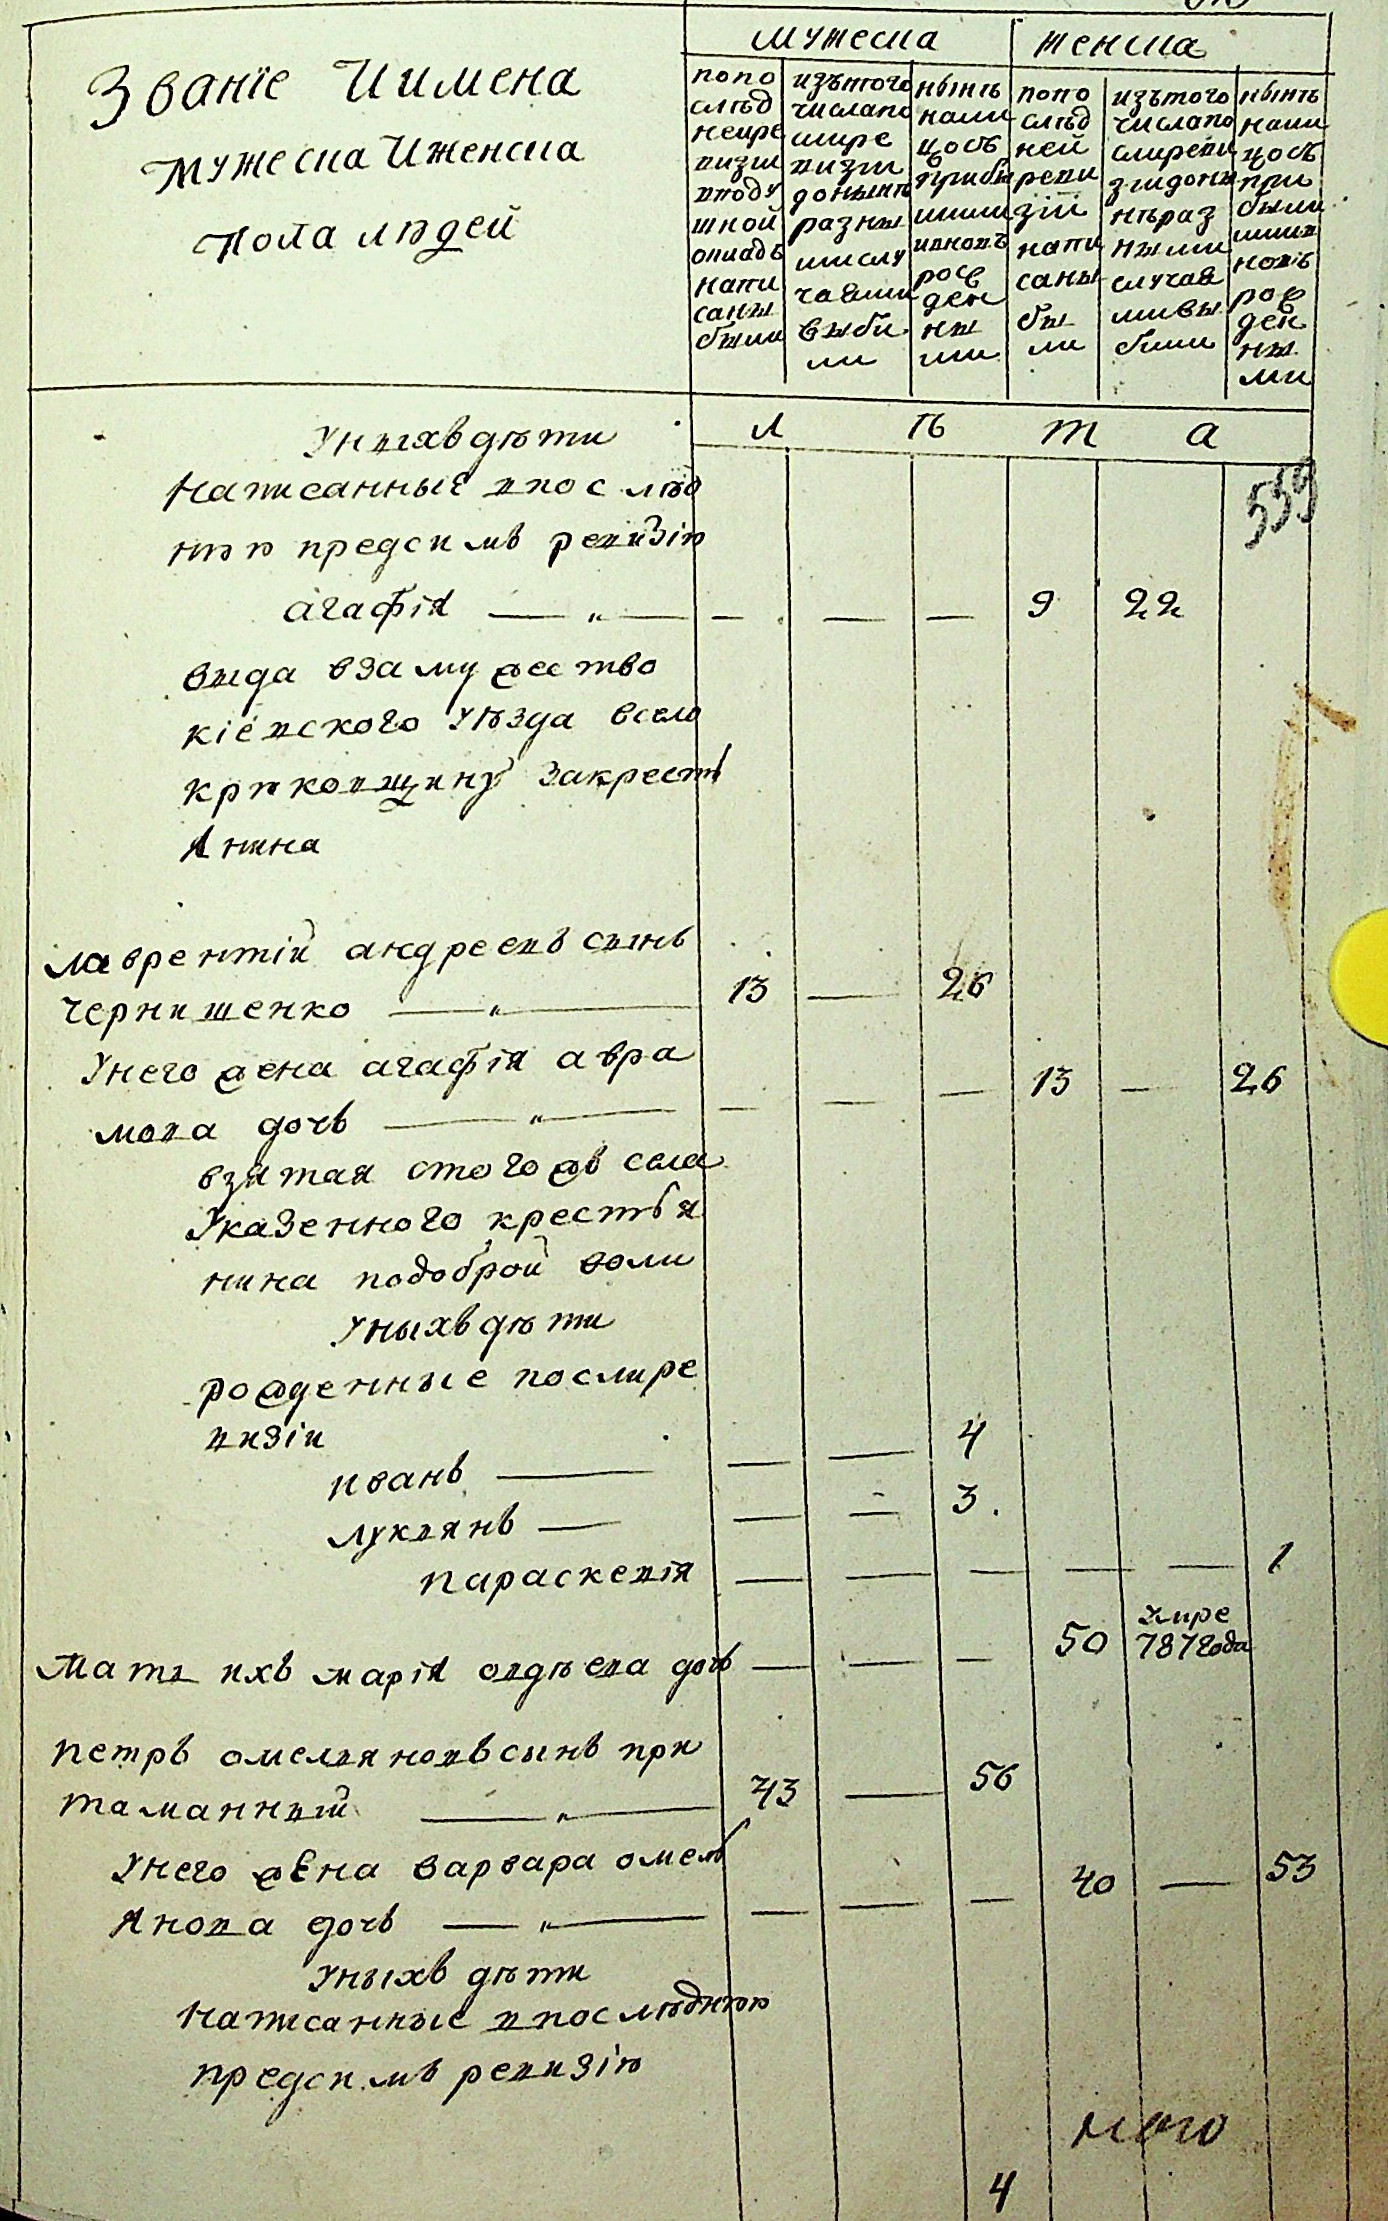 мужеска женска
Званїе И имена
мужеска И женска
пола людей
попо
слѣд
неирe
визїи
вподу
шной
окладъ
напи
саны
были
изътого
числапо
слире
визїи
донынѣ
разны
мислу
чаями
выбы
ли
нынѣ
нали
цось
прибы
лими
ивновъ
рож
ден
ны
ми
попо
слѣд
ней
реви
зїи
напи
саны
бы
ли
изътого
числапо
слиреви
зїидоны
нѣраз
ными
случая
мивы
были
нынѣ
нали
цось
при
были
мии
новъ
рож
ден
ны
ми
л ѣ т а
Уныхъ дѣти
написанные впослѣд
нюю предсимъ ревизїю
559
агафїя — „ — — — — 9 22
выда взамужество
кїевского уѣзда всело
крюковщину закресть
янина
лаврентїй андреевъ сынъ
чернишенко — „ — 13 — 26
Унего жена агафїя авра
мова дочь — „ — — — — 13 — 26
взятая стогожъ села
Указенного крестья
нина подоброй воли
Уныхъ дѣти
рожденные послире
визїи
иванъ — — — 4
лукіянъ — — — 3
параскевїя — — — — — 1
мать ихъ марїя авдѣева дочь — — — 50 умре 787года
петръ омеляновъ сынъ при
таманный — „ — 43 — 56
Унего жена варвара омель
янова дочь — „ — — — — 40 — 53
Уныхъ дѣти
написанные впослѣднюю
предсимъ ревизїю
4